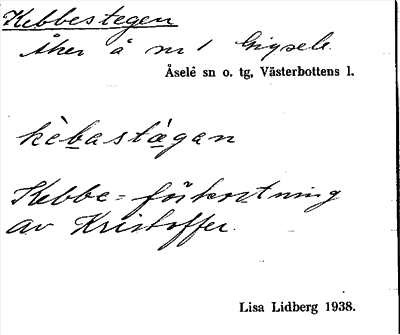 Kebbestegen
åker å nr 1 Gigsele
Åsele sn o. tg, Västerbottens l.
kèbastàgan
Kebbe = förkortning
av Kristoffer.
Lisa Lidberg 1938.